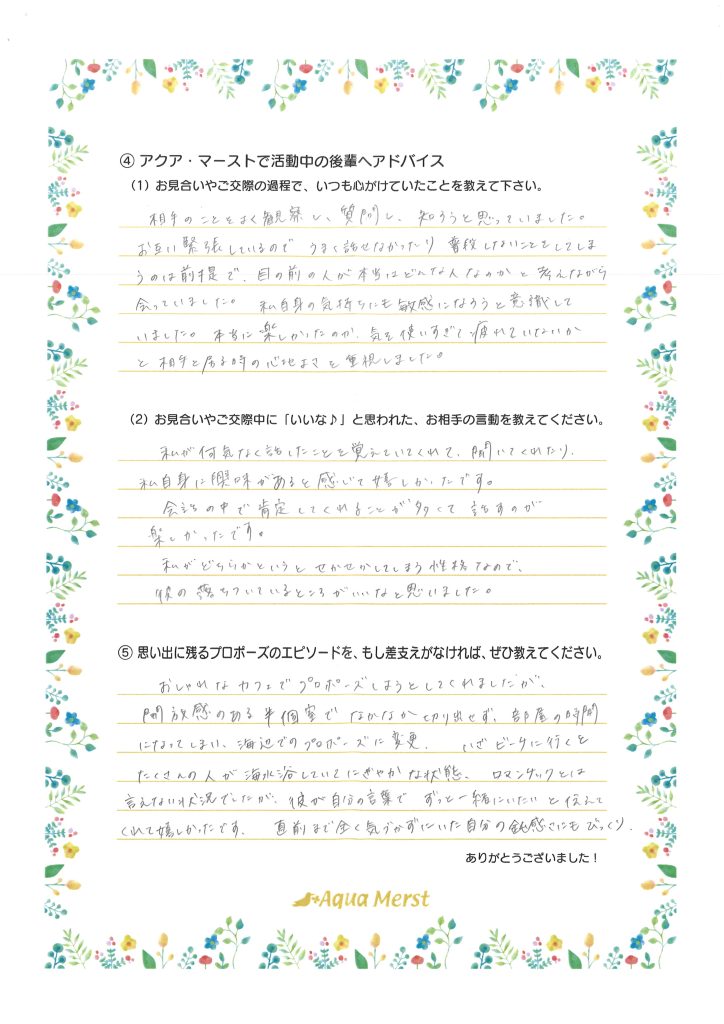 ④ アクア・マーストで活動中の後輩へアドバイス
（1）お見合いやご交際の過程で、いつも心がけていたことを教えて下さい。
相手のことをよく観察し、質問し、知ろうと思っていました。
お互い緊張しているので うまく話せなかったり 普段しないことをしてしま
うのは前提で、目の前の人が本当はどんな人なのか と 考えながら
会っていました。 私自身の気持ちにも敏感になろうと意識して
いました。本当に楽しかったのか、気を使いすぎて疲れていないか
と 相手と居る時の心地よさを重視しました。
（2）お見合いやご交際中に「いいな♪」と思われた、お相手の言動を教えてください。
私が何気なく話したことを覚えていてくれて、聞いてくれたり、
私自身に興味があると感じて嬉しかったです。
会話の中で肯定してくれることが多くて 話すのが
楽しかったです。
私がどちらかというと せかせかしてしまう性格なので、
彼の落ちついているところがいいなと思いました。
⑤ 思い出に残るプロポーズのエピソードを、もし差支えがなければ、ぜひ教えてください。
おしゃれなカフェでプロポーズしようとしてくれましたが、
開放感のある半個室で なかなか切り出せず、部屋の時間
になってしまい、海辺でのプロポーズに変更。 いざビーチに行くと
たくさんの人が海水浴していてにぎやかな状態、ロマンチックとは
言えない状況でしたが、彼が自分の言葉で ずっと一緒にいたい と伝えて
くれて嬉しかったです。 直前まで全く気づかずにいた自分の鈍感さにもびっくり．
ありがとうございました！
Aqua Merst